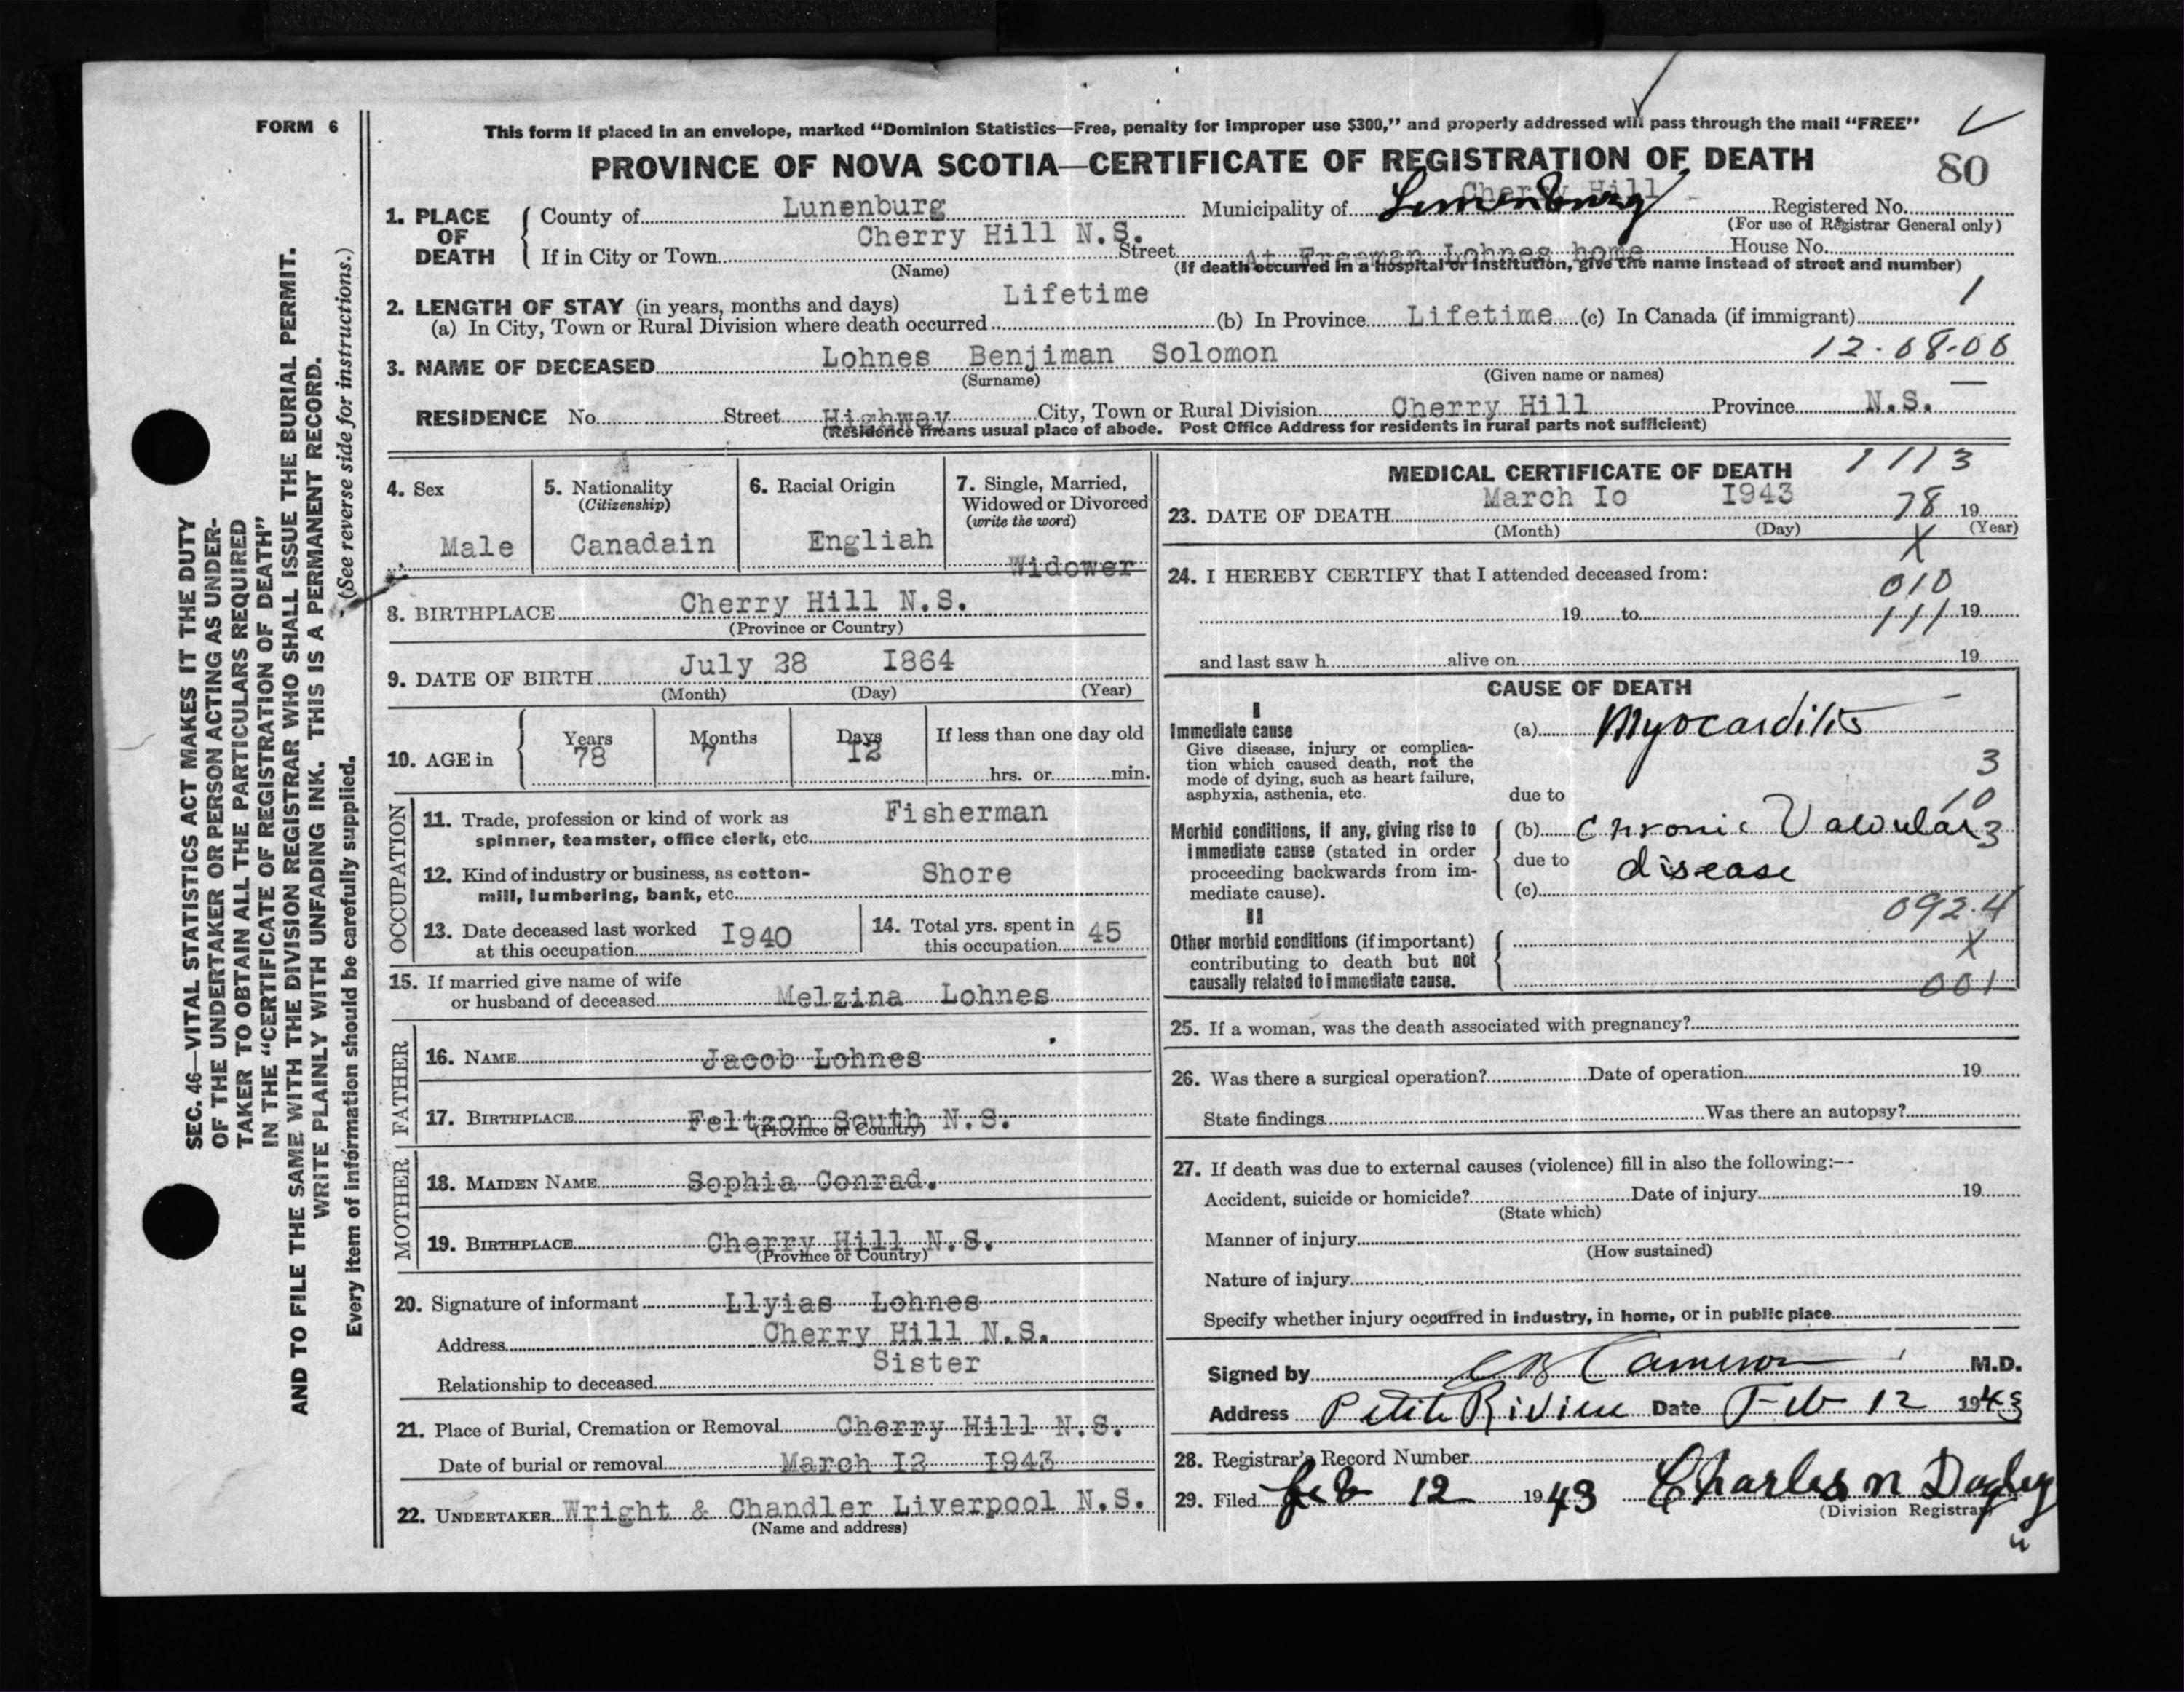 FORM 6
This form if placed in an envelope, marked “Dominion Statistics—Free, penalty for improper use $300,” and properly addressed will pass through the mail “FREE”
PROVINCE OF NOVA SCOTIA—CERTIFICATE OF REGISTRATION OF DEATH
80
1. PLACE OF DEATH
County of Lunenburg Municipality of Cherry Hill Lunenburg Registered No.
(For use of Registrar General only)
If in City or Town Cherry Hill N.S. Street At Freeman Lohnes home House No.
(Name) (If death occurred in a hospital or institution, give the name instead of street and number)
2. LENGTH OF STAY (in years, months and days) 1
(a) In City, Town or Rural Division where death occurred Lifetime (b) In Province Lifetime (c) In Canada (if immigrant)
3. NAME OF DECEASED Lohnes Benjiman Solomon 12-08-06
(Surname) (Given name or names)
RESIDENCE No. Street Highway City, Town or Rural Division Cherry Hill Province N.S.
(Residence means usual place of abode. Post Office Address for residents in rural parts not sufficient)
4. Sex
Male
5. Nationality
(Citizenship)
Canadain
6. Racial Origin
Engliah
7. Single, Married,
Widowed or Divorced
(write the word)
Widower
8. BIRTHPLACE Cherry Hill N.S.
(Province or Country)
9. DATE OF BIRTH July 28 I864
(Month) (Day) (Year)
10. AGE in
Years
78
Months
7
Days
12
If less than one day old
hrs. or min.
OCCUPATION
11. Trade, profession or kind of work as Fisherman
spinner, teamster, office clerk, etc.
12. Kind of industry or business, as cotton- Shore
mill, lumbering, bank, etc.
13. Date deceased last worked
at this occupation I940
14. Total yrs. spent in
this occupation 45
15. If married give name of wife
or husband of deceased Melzina Lohnes
FATHER
16. NAME Jacob Lohnes
17. BIRTHPLACE Feltzon South N.S.
(Province or Country)
MOTHER
18. MAIDEN NAME Sophia Conrad.
19. BIRTHPLACE Cherry Hill N.S.
(Province or Country)
20. Signature of informant Llyias Lohnes
Address Cherry Hill N.S.
Relationship to deceased Sister
21. Place of Burial, Cremation or Removal Cherry Hill N.S.
Date of burial or removal March I2 I943
22. UNDERTAKER Wright & Chandler Liverpool N.S.
(Name and address)
MEDICAL CERTIFICATE OF DEATH 1113
23. DATE OF DEATH March Io I943 78 19
(Month) (Day) (Year)
X
24. I HEREBY CERTIFY that I attended deceased from:
010
19 to 111 19
and last saw h alive on 19
CAUSE OF DEATH
I
Immediate cause
Give disease, injury or complica-
tion which caused death, not the
mode of dying, such as heart failure,
asphyxia, asthenia, etc.
(a) Myocarditis
3
due to
10
Morbid conditions, if any, giving rise to
immediate cause (stated in order
proceeding backwards from im-
mediate cause).
(b) Chronic Valvular 3
due to disease
(c)
092.4
II
Other morbid conditions (if important)
contributing to death but not
causally related to immediate cause.
X
001
25. If a woman, was the death associated with pregnancy?
26. Was there a surgical operation? Date of operation 19
State findings Was there an autopsy?
27. If death was due to external causes (violence) fill in also the following:--
Accident, suicide or homicide? Date of injury 19
(State which)
Manner of injury
(How sustained)
Nature of injury
Specify whether injury occurred in industry, in home, or in public place
Signed by C B Cameron M.D.
Address Petite Riviere Date Feb 12 1943
28. Registrar's Record Number
29. Filed Feb 12 1943 Charles N Dagley
(Division Registrar)
SEC. 46—VITAL STATISTICS ACT MAKES IT THE DUTY
OF THE UNDERTAKER OR PERSON ACTING AS UNDER-
TAKER TO OBTAIN ALL THE PARTICULARS REQUIRED
IN THE “CERTIFICATE OF REGISTRATION OF DEATH”
AND TO FILE THE SAME WITH THE DIVISION REGISTRAR WHO SHALL ISSUE THE BURIAL PERMIT.
WRITE PLAINLY WITH UNFADING INK. THIS IS A PERMANENT RECORD.
Every item of information should be carefully supplied. (See reverse side for instructions.)